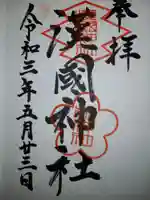 奉拝
漢國神社
令和三年五月廿三日